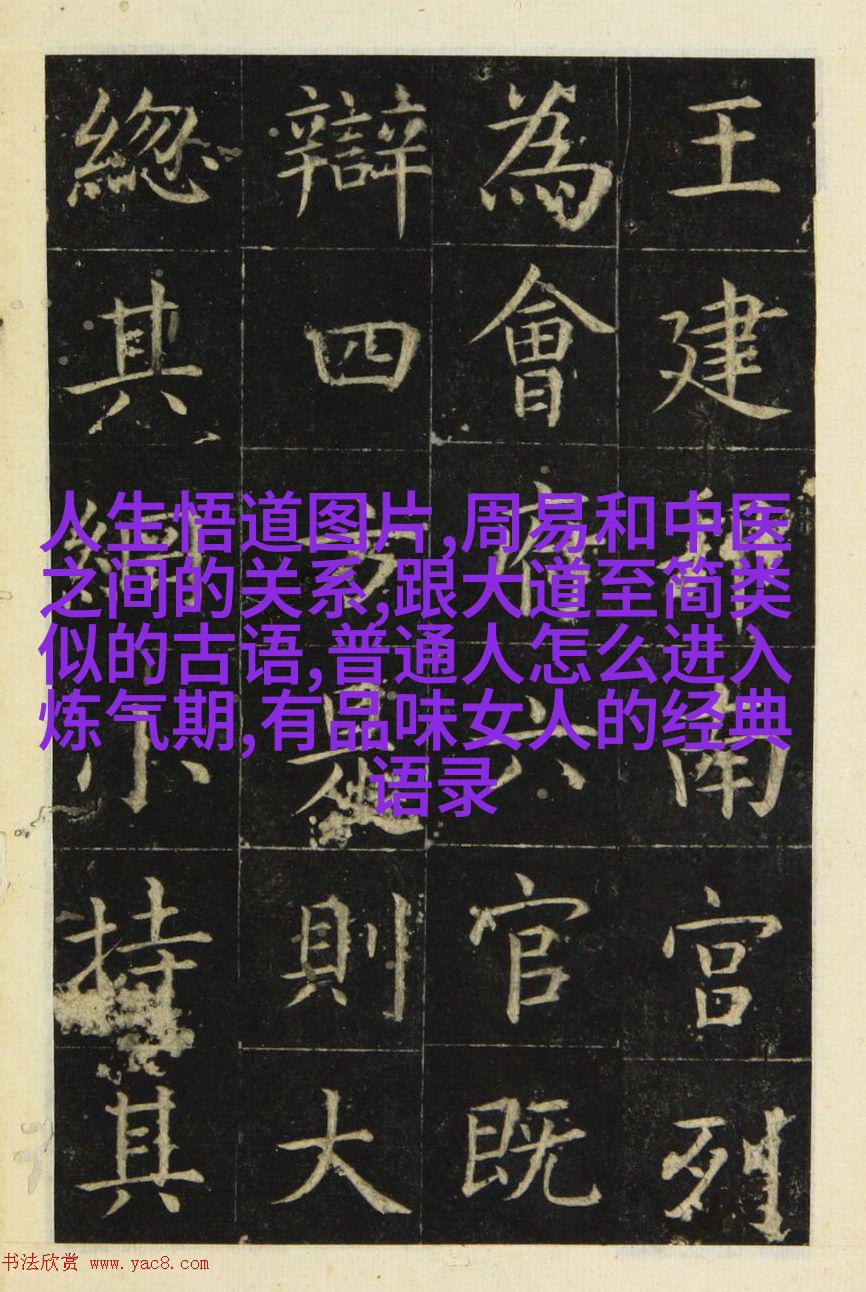 王建南宮列
為會府六官既
辯四方是則大
緫其綱小持其
人生悟道图片,周易和中医
之间的关系,跟大道至简类
似的古语,普通人怎么进入
炼气期,有品味女人的经典
语录
书法欣赏 www.yac8.com